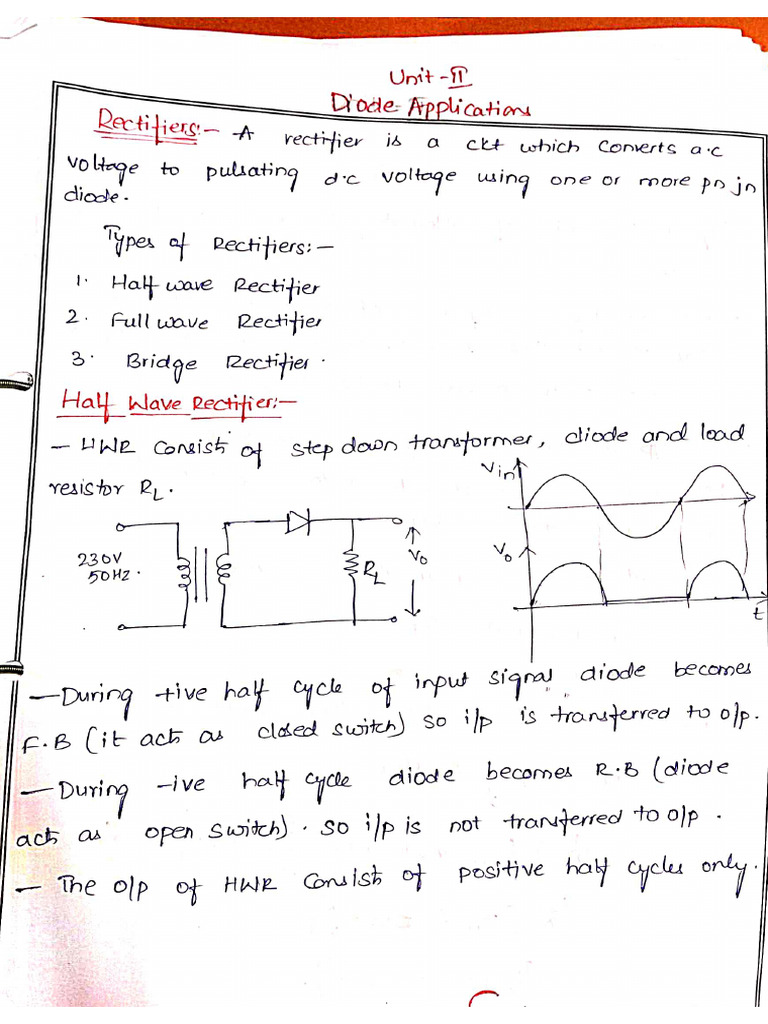 Unit -II
Diode Applications
Rectifiers:- A rectifier is a ckt which converts a.c
voltage to pulsating d.c voltage using one or more pn jn
diode.
Types of Rectifiers:-
1. Half wave Rectifier
2. Full wave Rectifier
3. Bridge Rectifier.
Half Wave Rectifier:-
- HWR consist of step down transformer, diode and load
resistor RL.
Vin
230V
50HZ.
RL
Vo
Vo
t
- During +ive half cycle of input signal diode becomes
F.B (it acts as closed switch) so i/p is transferred to o/p.
- During -ive half cycle diode becomes R.B (diode
acts as open switch). so i/p is not transferred to o/p.
- The o/p of HWR consist of positive half cycles only.